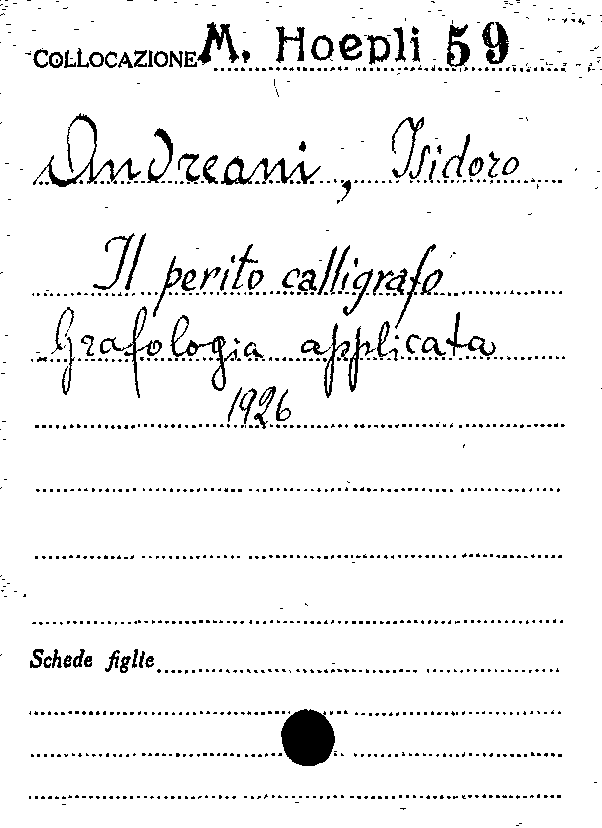 COLLOCAZIONE M. Hoepli 59
Andreani, Isidoro
Il perito calligrafo
Grafologia applicata
1926
Schede figlie